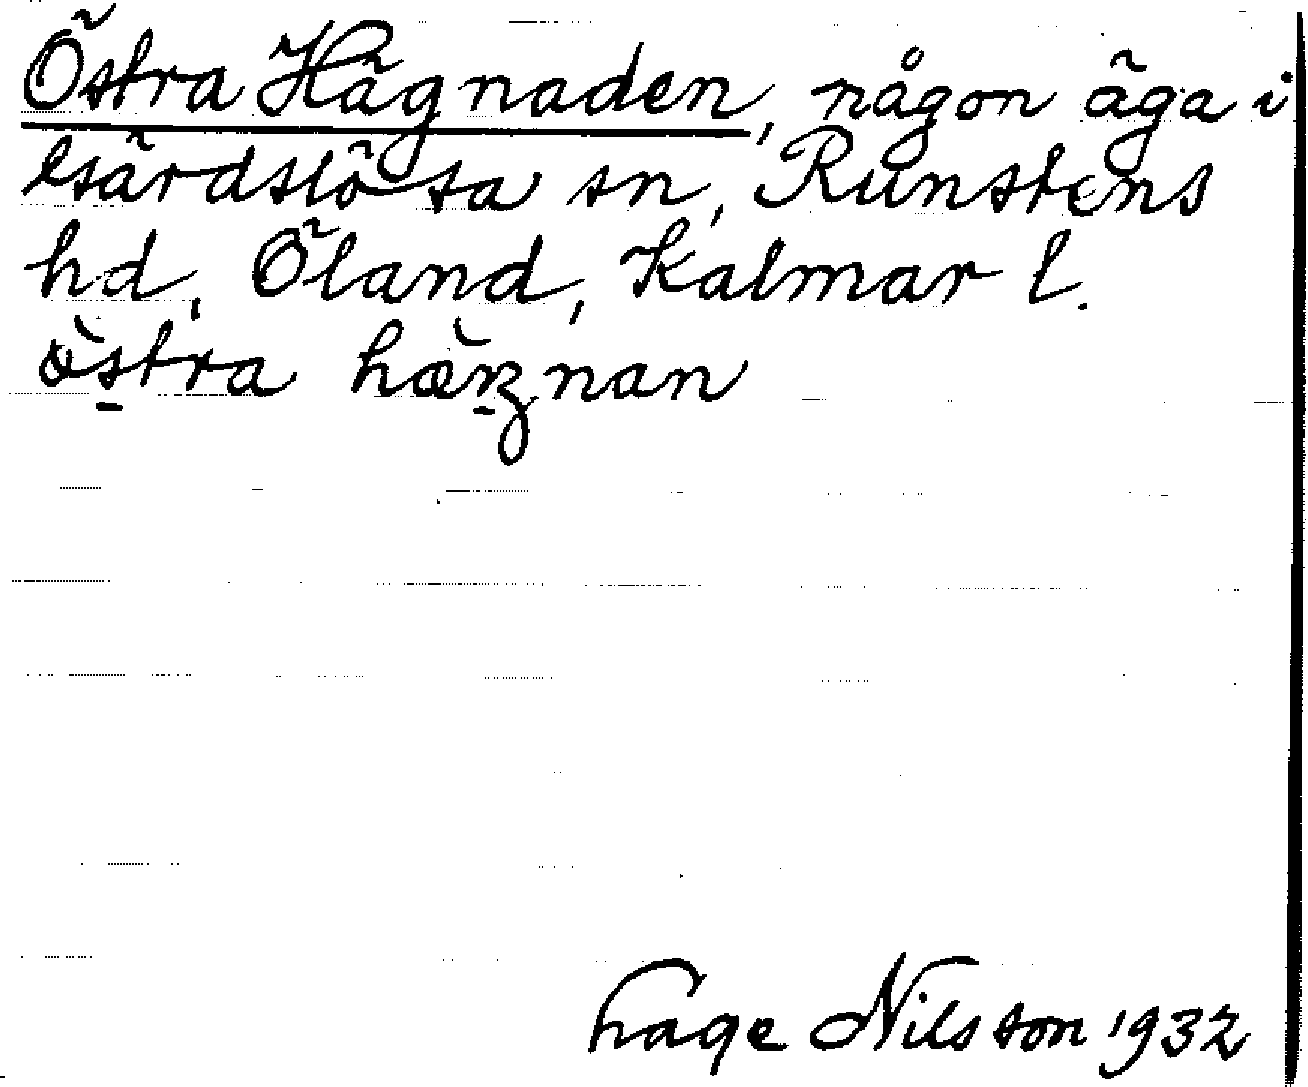 Östra Hägnaden, någon äga i
Gärdslösa sn, Runstens
hd, Öland, Kalmar l.
östra hæŋnan
Nilsson 1932